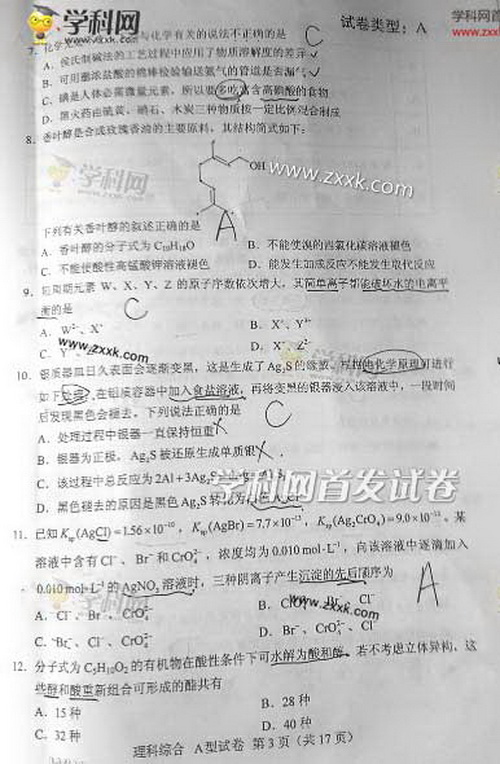 学科网 学科网
WWW.ZXXK.COM 试卷类型：A www.zx
7. 化学 与化学有关的说法不正确的是 C
A．侯氏制碱法的工艺过程中应用了物质溶解度的差异
B．可用蘸浓盐酸的棉棒检验输送氨气的管道是否漏气
C．碘是人体必需微量元素，所以要多吃富含高碘酸的食物
D．黑火药由硫黄、硝石、木炭三种物质按一定比例混合制成
8. 香叶醇是合成玫瑰香油的主要原料，其结构简式如下：
学科网
OH
www.zxxk.com
下列有关香叶醇的叙述正确的是 A
A．香叶醇的分子式为 C₁₀H₁₈O B．不能使溴的四氯化碳溶液褪色
C．不能使酸性高锰酸钾溶液褪色 D．能发生加成反应不能发生取代反应
9. 短周期元素 W、X、Y、Z 的原子序数依次增大，其简单离子都能破坏水的电离平
衡的是 C
A．W²⁻、X⁺ B．X⁺、Y³⁺
C．Y D．X⁺、Z²⁻
www.zxxk.com
10. 银质器皿日久表面会逐渐变黑，这是生了Ag₂S的缘故。 电化学原理可进行
如下处理：在铝质容器中加入食盐溶液，再将变黑的银器浸入该溶液中，一段时间
后发现黑色会褪去。下列说法正确的是 C
A．处理过程中银器一直保持恒重 X
B．银器为正极，Ag₂S 被还原生成单质银 X
C．该过程中总反应为 2Al+3Ag₂S
D．黑色褪去的原因是黑色 Ag₂S 转化为
学科网首发试卷
11. 已知 Kₛₚ(AgCl)=1.56×10⁻¹⁰，Kₛₚ(AgBr)=7.7×10⁻¹³，Kₛₚ(Ag₂CrO₄)=9.0×10⁻¹²。某
溶液中含有 Cl⁻、Br⁻和 CrO₄²⁻，浓度均为 0.010 mol·L⁻¹，向该溶液中逐滴加入
0.010 mol·L⁻¹ 的 AgNO₃ 溶液时，三种阴离子产生沉淀的先后顺序为 A
学科网 www.zxxk.com
A．Cl⁻、Br⁻、CrO₄²⁻ B．CrO₄²⁻、Br⁻、Cl⁻
C．Br⁻、Cl⁻、CrO₄²⁻ D．Br⁻、CrO₄²⁻、Cl⁻
12. 分子式为 C₅H₁₀O₂ 的有机物在酸性条件下可水解为酸和醇，若不考虑立体异构，这
些醇和酸重新组合可形成的酯共有
A．15 种 B．28 种
C．32 种 D．40 种
理科综合 A型试卷 第 3 页（共 17 页）